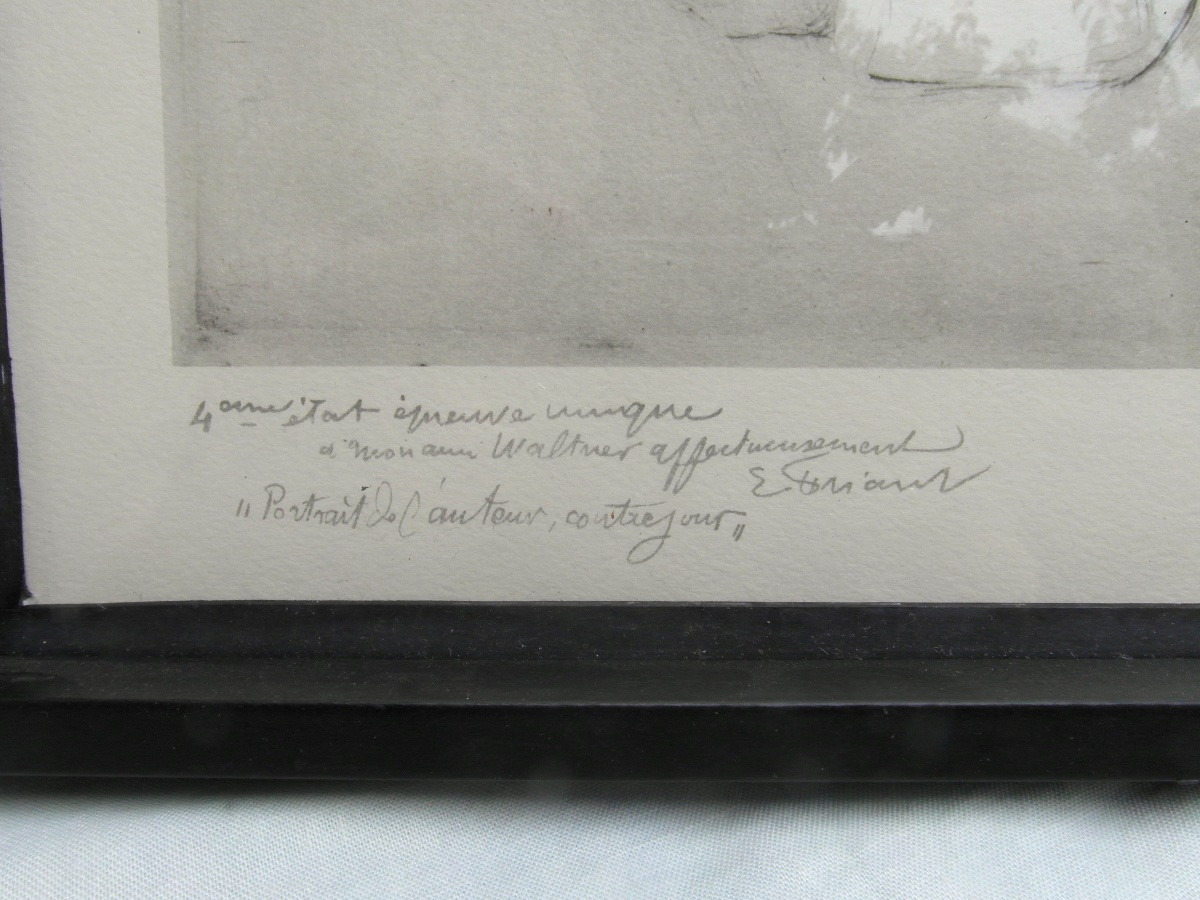 4ème état épreuve unique
à mon ami Waltner affectueusement
E. Friant
"Portrait de l'auteur, contrejour"